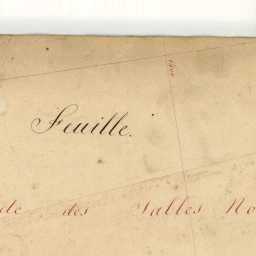 Feuille.
de des Salles No